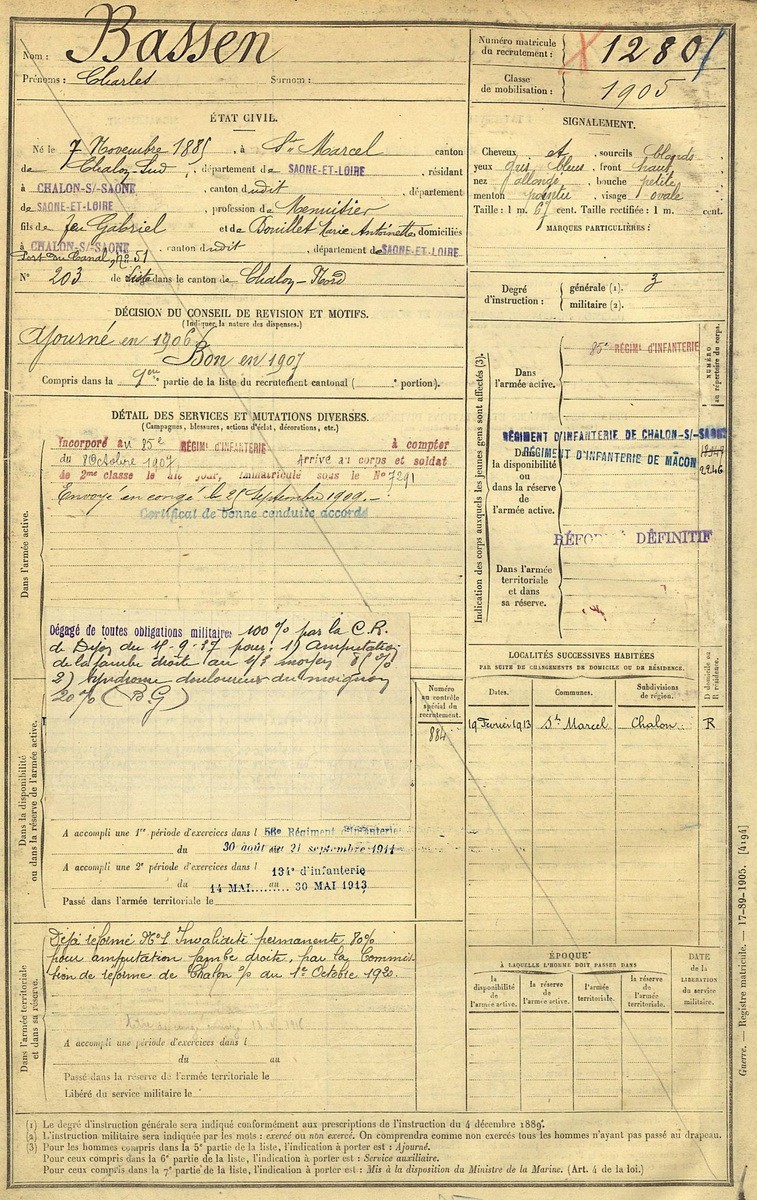 Nom : Bassen
Prénoms : Charles Surnom :
Numéro matricule
du recrutement : 1280
Classe
de mobilisation : 1905
ÉTAT CIVIL.
Né le 7 Novembre 1885, à St Marcel canton
de Chalon Sud, département de SAONE-ET-LOIRE, résidant
à CHALON-S/-SAONE, canton dudit, département
de SAONE-ET-LOIRE, profession de Menuisier
fils de feu Gabriel et de Douillet Marie Antoinette domiciliés
à CHALON-S/-SAONE, canton dudit, département de SAONE-ET-LOIRE
Port du Canal, no 51
N° 203 de liste dans le canton de Chalon-Nord
SIGNALEMENT.
Cheveux et, sourcils blonds
yeux gris bleus, front haut
nez allongé, bouche petite
menton pointu, visage ovale
Taille : 1 m. 67 cent. Taille rectifiée : 1 m. cent.
MARQUES PARTICULIÈRES :
Degré
d'instruction :
générale (1). 3
militaire (2).
DÉCISION DU CONSEIL DE REVISION ET MOTIFS.
(Indiquer la nature des dispenses.)
Ajourné en 1906
Bon en 1907
Compris dans la 1ère partie de la liste du recrutement cantonal ( e portion).
DÉTAIL DES SERVICES ET MUTATIONS DIVERSES.
(Campagnes, blessures, actions d'éclat, décorations, etc.)
Dans l'armée active.
Incorporé au 85e RÉGIMt D'INFANTERIE à compter
du 8 Octobre 1907, Arrivé au corps et soldat
de 2me classe le dit jour, immatriculé sous le No 7291
Envoyé en congé le 25 Septembre 1909.
Certificat de bonne conduite accordé
Dans la disponibilité
ou dans la réserve de l'armée active.
Dégagé de toutes obligations militaires 100 % par la C.R.
de Dijon du 15-9-37 pour : 1) Amputation
de la jambe droite au 1/3 moyen 85 %
2) syndrome douloureux du moignon
20 % (B.G)
Numéro
au contrôle
spécial du
recrutement.
884
A accompli une 1re période d'exercices dans l 56e Régiment d'Infanterie
du 30 août au 21 septembre 1911
A accompli une 2e période d'exercices dans l 134e d'infanterie
du 14 MAI au 30 MAI 1913
Passé dans l'armée territoriale le
Dans l'armée territoriale
et dans sa réserve.
Déjà réformé No 1 Invalidité permanente 80 %
pour amputation jambe droite, par la Commis-
sion de réforme de Chalon s/s du 1er Octobre 1920.
A accompli une période d'exercices dans l
du au
Passé dans la réserve de l'armée territoriale le
Libéré du service militaire le
Indication des corps auxquels les jeunes gens sont affectés (3).
NUMÉRO
au répertoire du corps.
Dans
l'armée active.
85e RÉGIMt D'INFANTERIE
Dans
la disponibilité
ou
dans la réserve
de
l'armée active.
RÉGIMENT D'INFANTERIE DE CHALON-S/-SAONE
RÉGIMENT D'INFANTERIE DE MÂCON
2246
RÉFORMÉ DÉFINITIF
Dans l'armée
territoriale
et dans
sa réserve.
LOCALITÉS SUCCESSIVES HABITÉES
PAR SUITE DE CHANGEMENTS DE DOMICILE OU DE RÉSIDENCE.
Dates. Communes. Subdivisions
de région.
D domicile ou
R résidence.
19 Février 1913 St Marcel Chalon R
ÉPOQUE
À LAQUELLE L'HOMME DOIT PASSER DANS
la
disponibilité
de
l'armée active.
la réserve
de
l'armée active.
l'armée
territoriale.
la réserve
de
l'armée
territoriale.
DATE
de la
LIBÉRATION
du service
militaire.
Guerre. — Registre matricule. — 17-89-1905. [4194]
(1) Le degré d'instruction générale sera indiqué conformément aux prescriptions de l'instruction du 4 décembre 1889.
(2) L'instruction militaire sera indiquée par les mots : exercé ou non exercé. On comprendra comme non exercés tous les hommes n'ayant pas passé au drapeau.
(3) Pour les hommes compris dans la 5e partie de la liste, l'indication à porter est : Ajourné.
Pour ceux compris dans la 6e partie de la liste, l'indication à porter est : Service auxiliaire.
Pour ceux compris dans la 7e partie de la liste, l'indication à porter est : Mis à la disposition du Ministre de la Marine. (Art. 4 de la loi.)